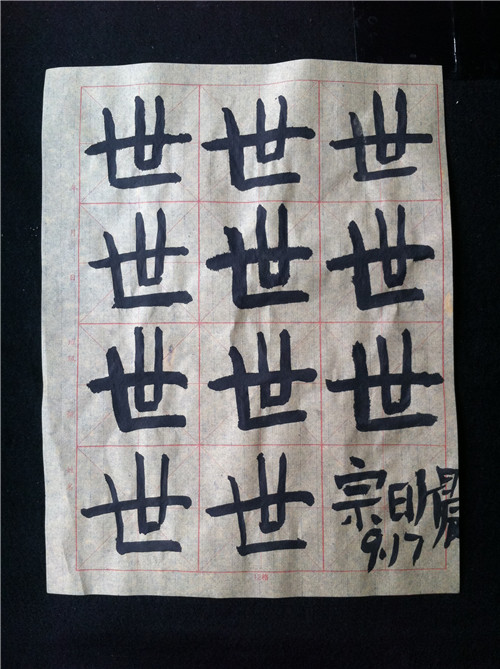 世世世
世世世
世世世
世世宗明晨
9.17